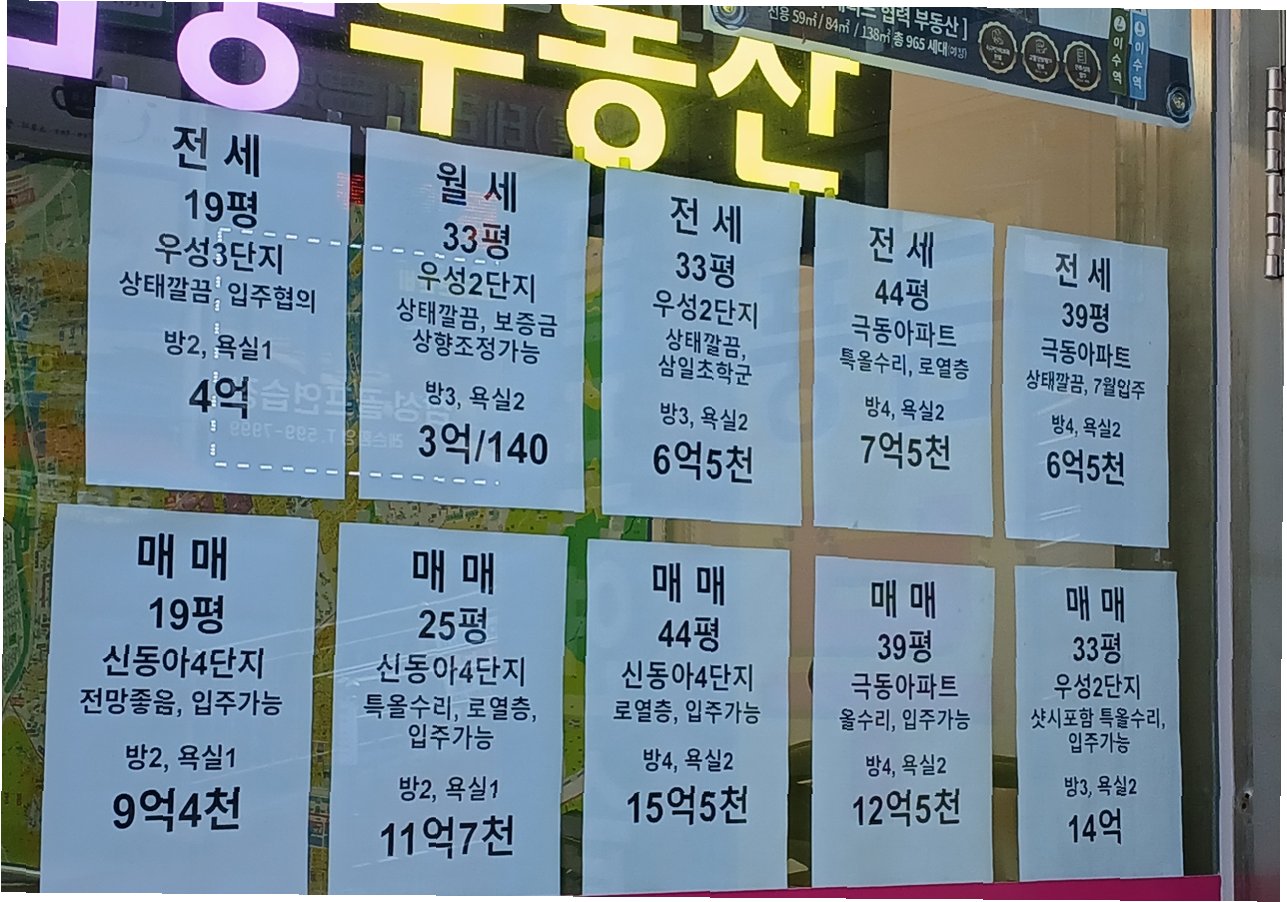 부동산
협력 부동산 ]
전용 59㎡ / 84㎡ / 138㎡ 총 965 세대(예정)
이수역
이수역
전 세
19평
우성3단지
상태깔끔, 입주협의
방2, 욕실1
4억
월 세
33평
우성2단지
상태깔끔, 보증금
상향조정가능
방3, 욕실2
3억/140
전 세
33평
우성2단지
상태깔끔,
삼일초학군
방3, 욕실2
6억5천
전 세
44평
극동아파트
특올수리, 로열층
방4, 욕실2
7억5천
전 세
39평
극동아파트
상태깔끔, 7월입주
방4, 욕실2
6억5천
매 매
19평
신동아4단지
전망좋음, 입주가능
방2, 욕실1
9억4천
매 매
25평
신동아4단지
특올수리, 로열층,
입주가능
방2, 욕실1
11억7천
매 매
44평
신동아4단지
로열층, 입주가능
방4, 욕실2
15억5천
매 매
39평
극동아파트
올수리, 입주가능
방4, 욕실2
12억5천
매 매
33평
우성2단지
샷시포함 특올수리,
입주가능
방3, 욕실2
14억